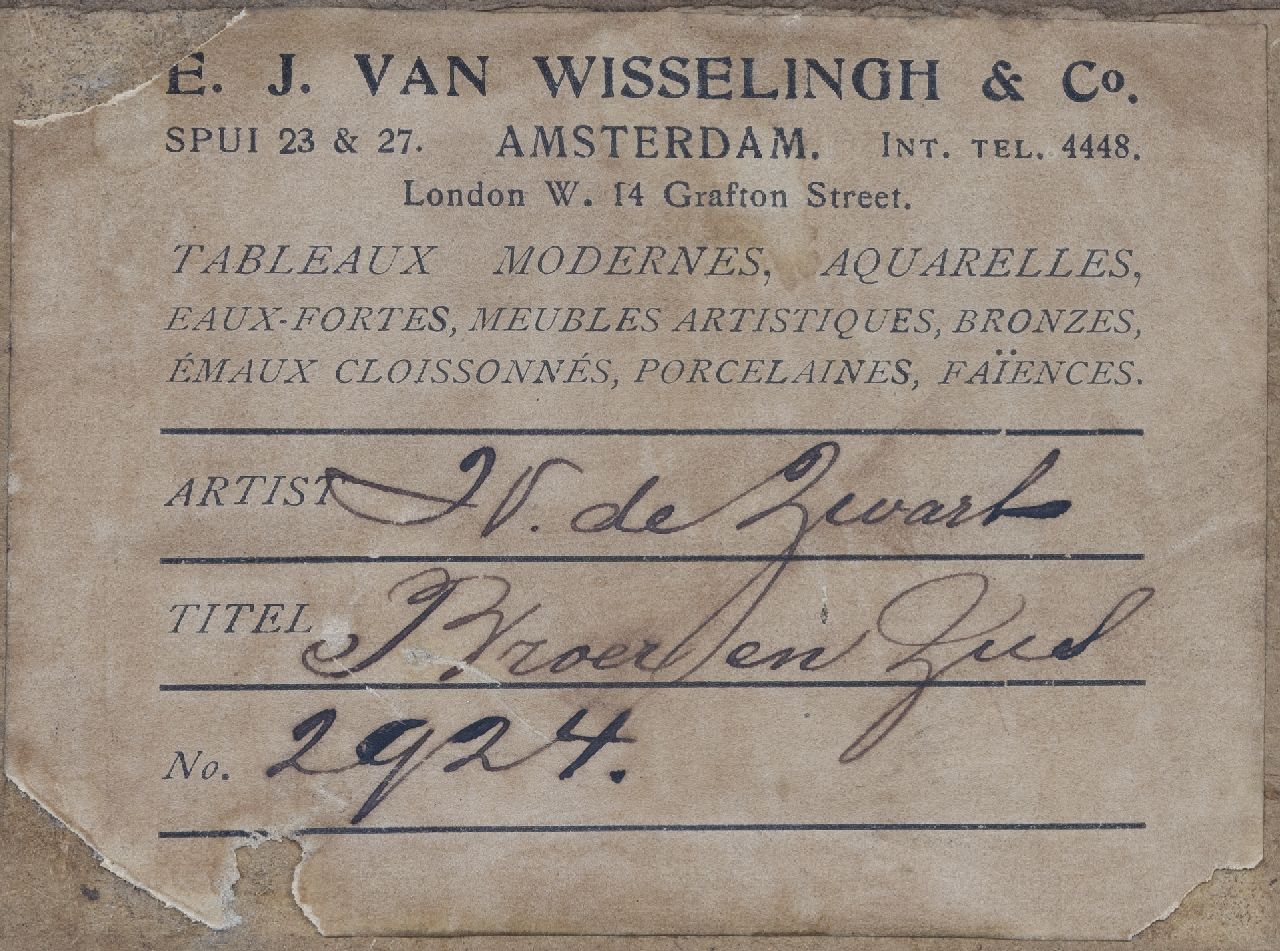 E. J. VAN WISSELINGH & Co.
SPUI 23 & 27. AMSTERDAM. INT. TEL. 4448.
London W. 14 Grafton Street.
TABLEAUX MODERNES, AQUARELLES,
EAUX-FORTES, MEUBLES ARTISTIQUES, BRONZES,
ÉMAUX CLOISSONNÉS, PORCELAINES, FAÏENCES.
ARTIST W. de Zwart
TITEL Broer en Zus
No. 2924.